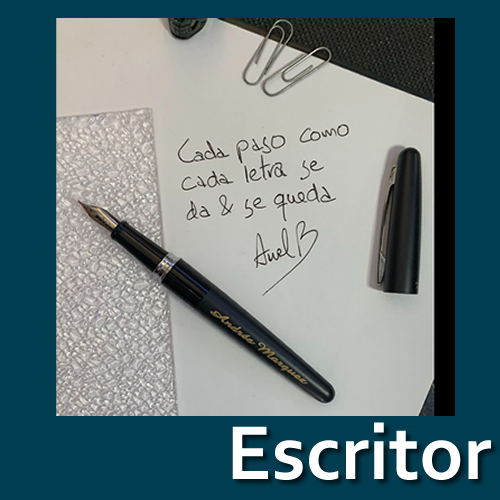 Cada paso como
cada letra se
da & se queda
Anel B
Andrée Marquez
Escritor